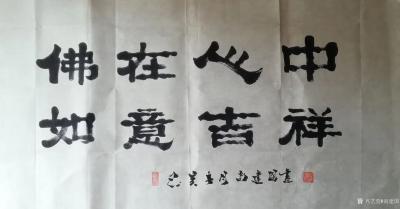 佛在心中
如意吉祥